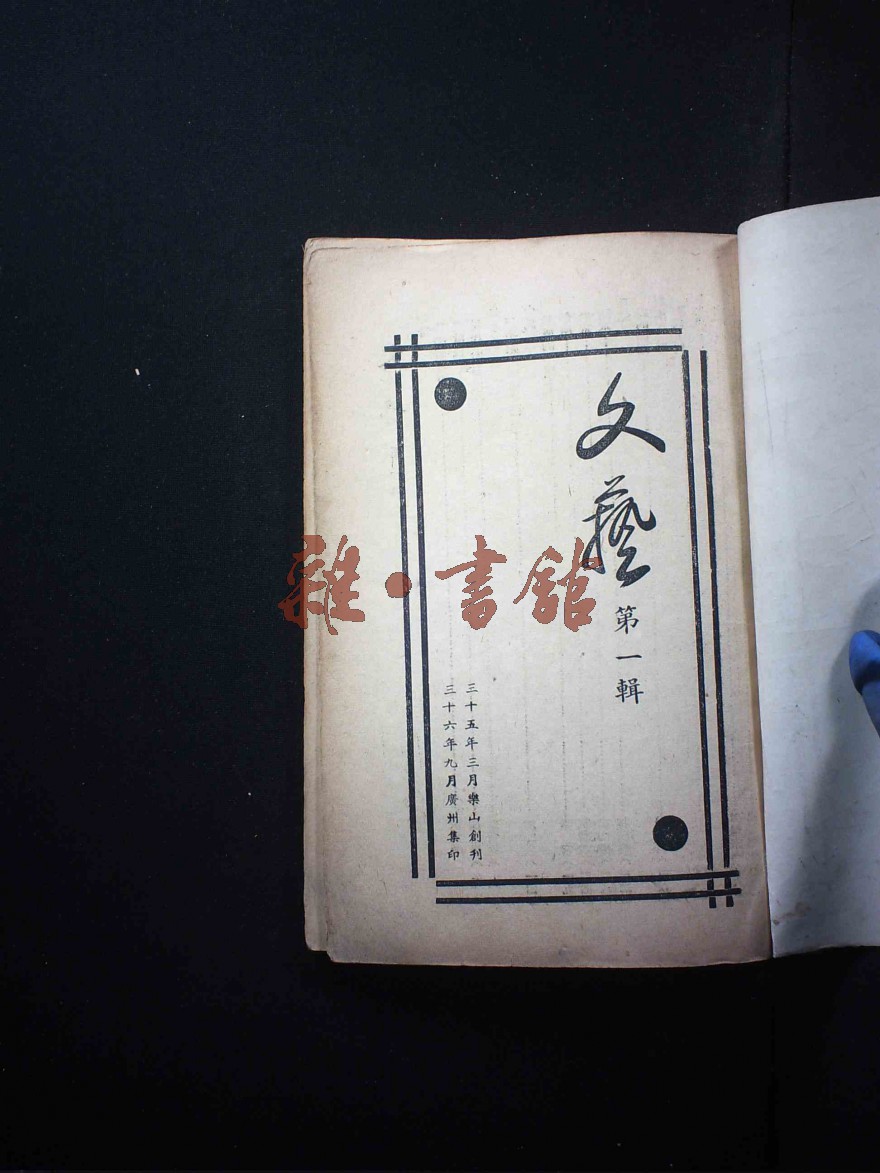 文藝
第一輯
三十五年三月樂山創刊
三十六年九月廣州集印
雜·書館